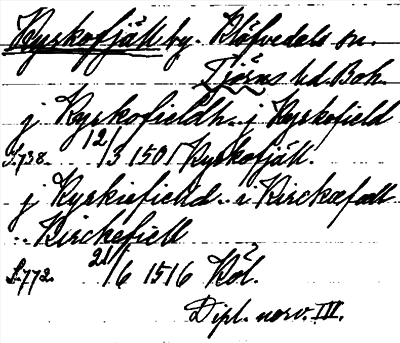 Kyrkofjäll by. Klöfvedals sn.
Tjörns hd. Boh.
j Kyrkofieldh. j Kyrkofield
S. 738. 12/3 1501 Kyrkofjäll.
j Kyrkiefield. i Kirckæfæll
.. Kirckefiell
S. 772. 21/6 1516 Köl.
Dipl. norv. III.